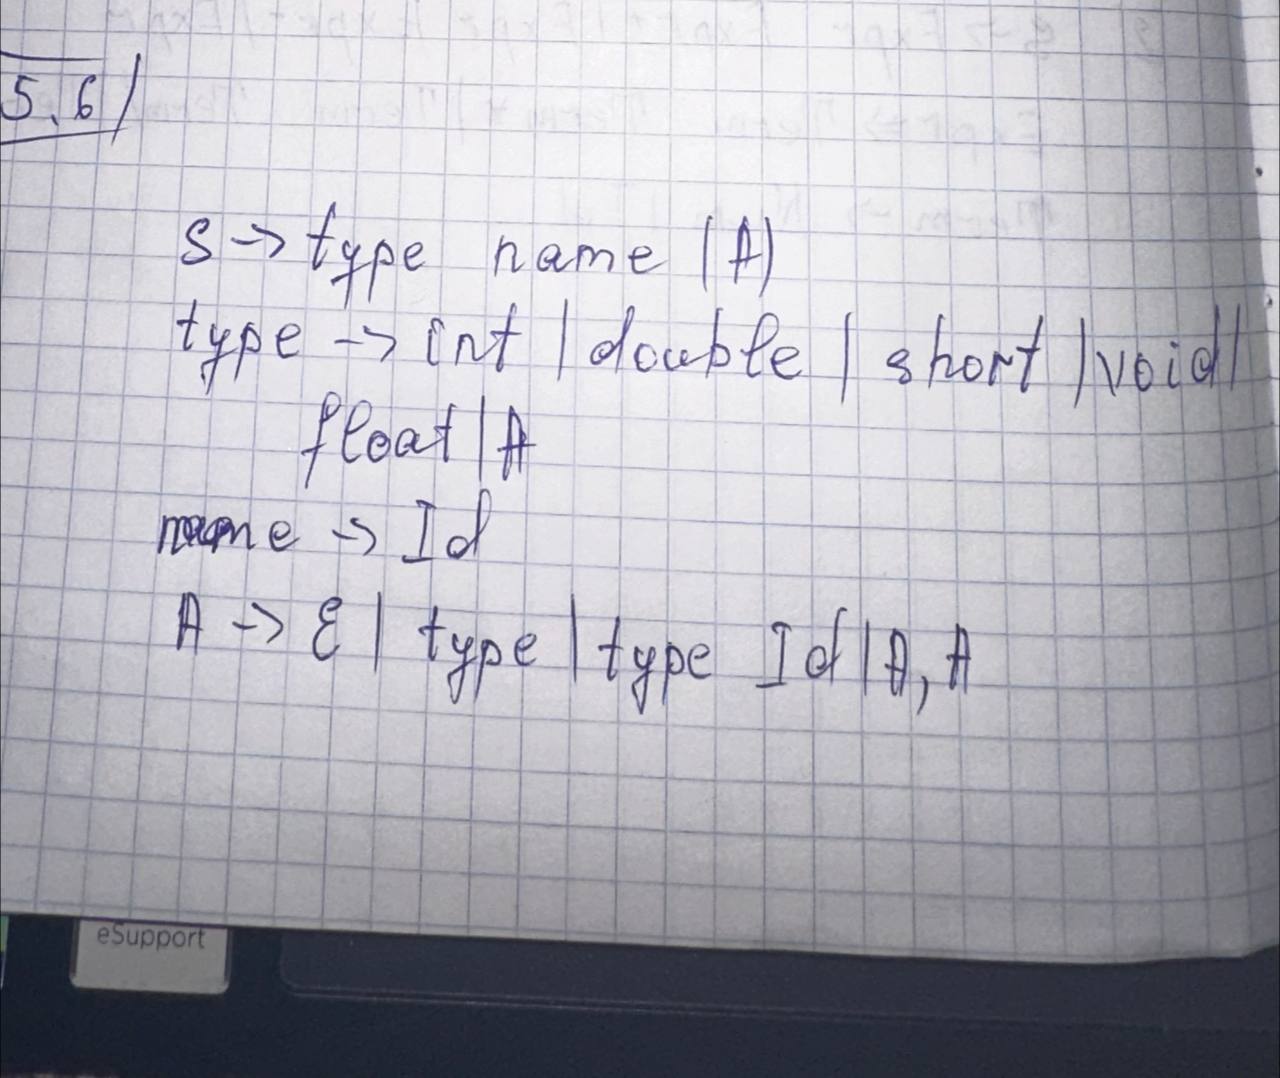 5.6
S → type name (A)
type → int | double | short | void |
float | A
name → Id
A → ε | type | type Id | A, A
eSupport